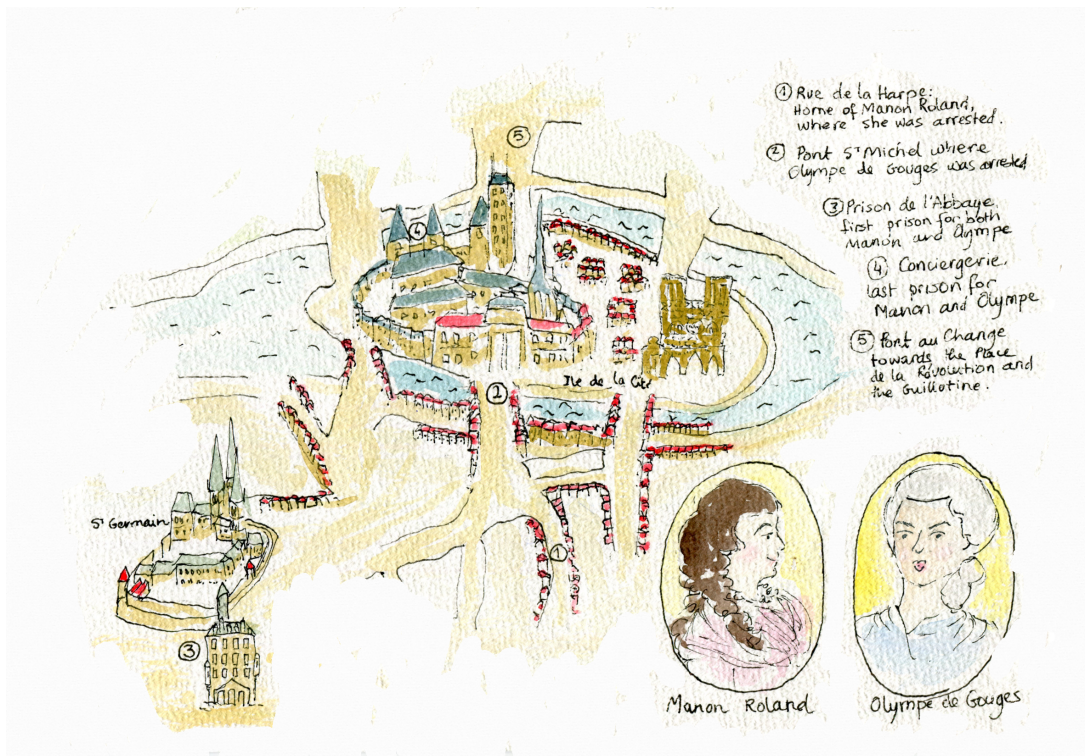 ① Rue de la Harpe:
Home of Manon Roland,
where she was arrested.
② Pont Sᵀ Michel where
Olympe de Gouges was arrested
③ Prison de l'Abbaye.
first prison for both
Manon and Olympe
④ Conciergerie.
last prison for
Manon and Olympe
⑤ Pont au Change
towards the Place
de la Révolution and
the Guillotine.
⑤
④
Ile de la Cité
②
Sᵀ Germain
①
③
Manon Roland
Olympe de Gouges